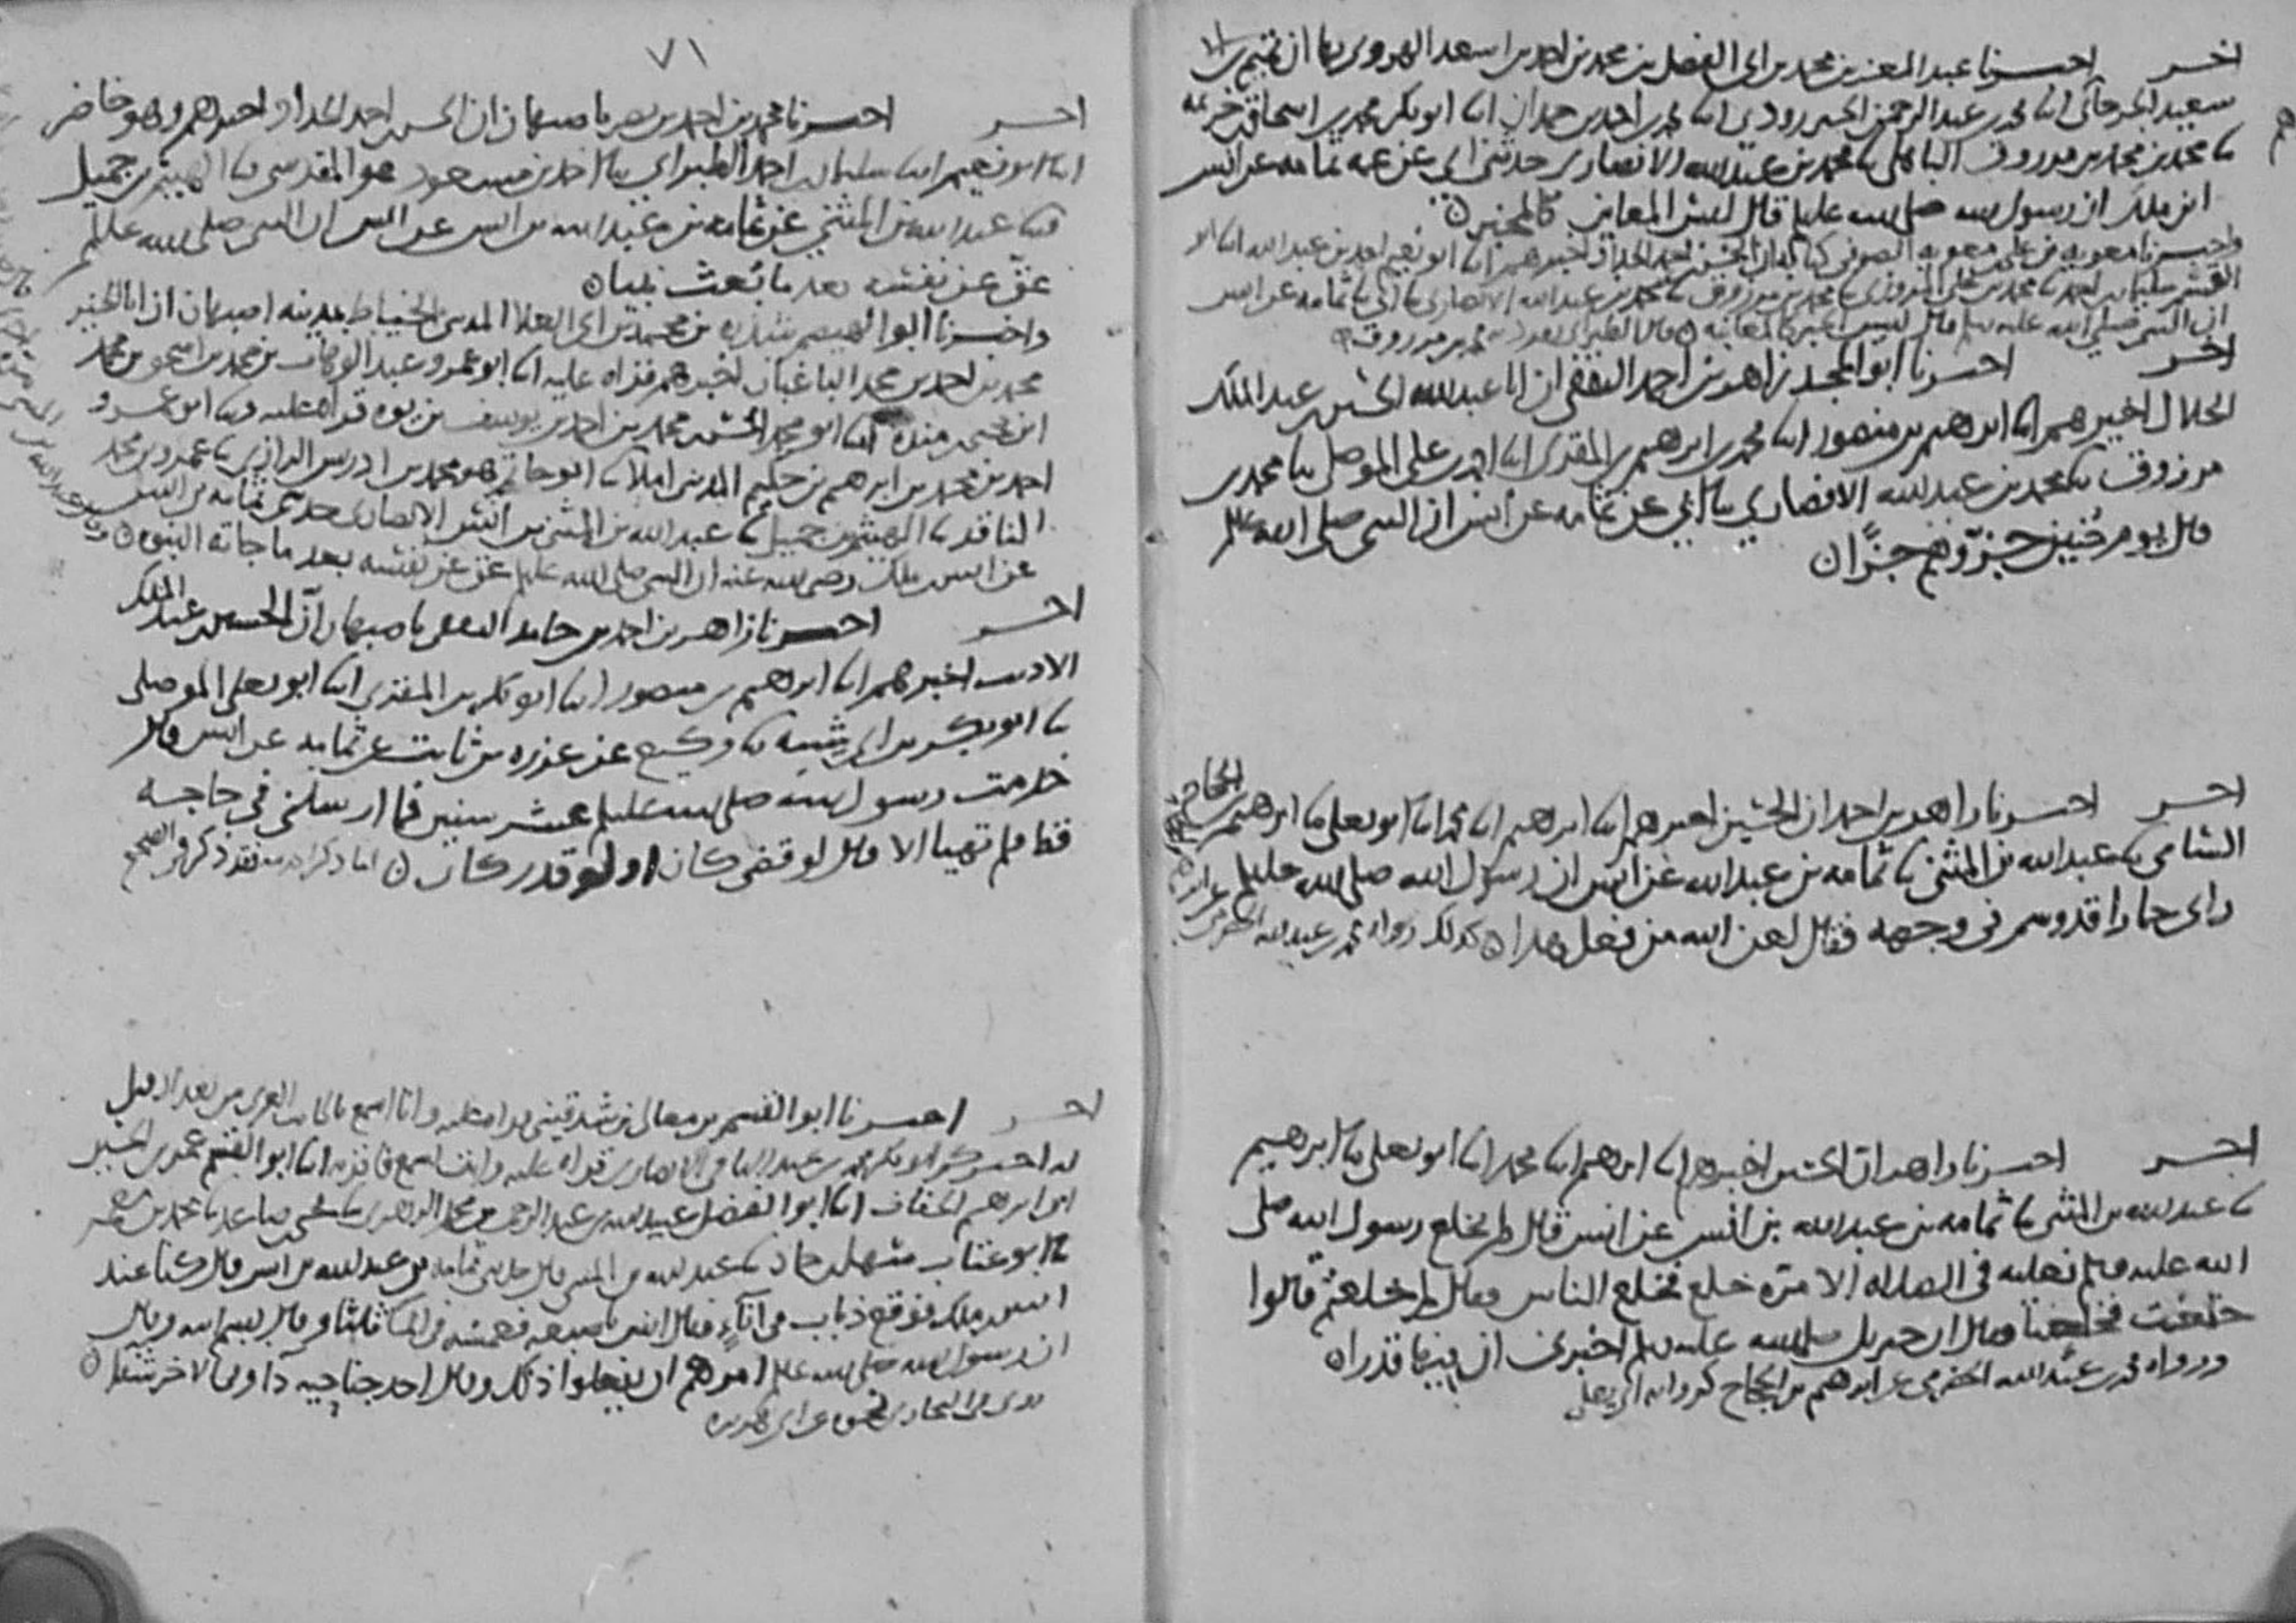 اخر احسرنا عبد المعز بن محمد بن ابى الفضل بن محمد بن احمد بن اسعد الهروى بها ان تميم بن ابى
سعيد الجرجانى انا محمد بن عبد الرحمن الجنزرودى انا محمد بن احمد بن حمدان انا ابو بكر محمد بن اسحاق بن خزيمه
نا محمد بن محمد بن مرزوق الباهلى نا محمد بن عبد الله الانصارى حدثنى ابى عن عمه ثمامه عن انس
ابن ملك ان رسول الله صلى الله عليه قال ليس المعاين كالمخبر
واخبرنا معويه بن على بن معويه الصوفى كتابة ان الحسن بن احمد الحداد اخبرهم انا ابو نعيم احمد بن عبد الله انا ابو
القسم سليمان بن احمد نا محمد بن على المروزى نا محمد بن مرزوق نا محمد بن عبد الله الانصارى نا ابى نا ثمامه عن انس
ان النبى صلى الله عليه وسلم قال ليس الخبر كالمعاينه قال الطبرانى تفرد به محمد بن مرزوق
اخر احسرنا ابو المجد زاهر بن احمد الثقفى ان ابا عبد الله الحسين بن عبد الملك
الخلال اخبرهم انا ابرهيم بن منصور انا محمد بن ابرهيم بن المقرى انا احمد بن على الموصلى نا محمد بن
مرزوق نا محمد بن عبد الله الانصارى نا ابى عن ثمامه عن انس ان النبى صلى الله عليه
قال يوم حنين جزّوهم جزًّا
اخر احسرنا زاهر بن احمد ان الحسين اخبرهم انا ابرهيم انا محمد انا ابو يعلى نا ابرهيم بن الحجاج
الشامى نا عبد الله بن المثنى نا ثمامه بن عبد الله عن انس ان رسول الله صلى الله عليه
راى حمارا قد وسم فى وجهه فقال لعن الله من فعل هذا كذلك رواه محمد بن عبد الله الحضرمى
اخر احسرنا زاهر ان الحسين اخبرهم انا ابرهيم انا محمد انا ابو يعلى نا ابرهيم
نا عبد الله بن المثنى نا ثمامه بن عبد الله بن انس عن انس قال لم يخلع رسول الله صلى
الله عليه وسلم نعليه فى الصلاه الا مره خلع فخلع الناس فقال لم خلعتم قالوا
خلعت فخلعنا فقال ان جبريل صلى الله عليه وسلم اخبرنى ان فيهما قذرا
ورواه محمد بن عبد الله الحضرمى عن ابرهيم بن الحجاج كروايه ابى يعلى
٧١
اخر احسرنا محمد بن احمد بن نصر باصبهان ان الحسن بن احمد الحداد اخبرهم وهو حاضر
انا ابو نعيم انا سليمان بن احمد الطبرانى نا احمد بن مسعود هو المقدسى نا الهيثم بن جميل
نا عبد الله بن المثنى عن ثمامه بن عبد الله بن انس عن انس ان النبى صلى الله عليه وسلم
عقّ عن نفسه بعد ما بُعث نبيا
واخبرنا ابو محمد بن ابى العلا المدينى الخياط بمدينه اصبهان ان ابا الخير
محمد بن احمد بن محمد الباغبان اخبرهم قراه عليه انا ابو عمرو عبد الوهاب بن محمد بن اسحق بن محمد
ابن يحيى بن منده انا ابو محمد الحسن بن محمد بن احمد بن يوسف بن يوه قراه عليه نا ابو عمرو
احمد بن محمد بن ابرهيم بن حكيم المدينى املا نا ابو حاتم هو محمد بن ادريس الرازى نا عمرو بن محمد
الناقد نا الهيثم بن جميل نا عبد الله بن المثنى بن انس الانصارى حدثنى ثمامه بن انس
عن انس بن ملك رضى الله عنه ان النبى صلى الله عليه عق عن نفسه بعد ما جاته النبوه
اخر احسرنا زاهر بن احمد بن حامد الثقفى باصبهان ان الحسين بن عبد الملك
الاديب اخبرهم انا ابرهيم بن منصور انا ابو بكر بن المقرى انا ابو يعلى الموصلى
نا ابو بكر بن ابى شيبه نا وكيع عن عزره بن ثابت عن ثمامه عن انس قال
خدمت رسول الله صلى الله عليه عشر سنين فما ارسلنى فى حاجه
قط فلم تهيا الا قال لو قضى كان او لو قدر كان
اخر احسرنا ابو القسم بن معالى بن شدقينى قراه عليه وانا اسمع بالجانب الغربى من بغداد قيل
له اخبركم ابو بكر محمد بن عبد الباقى الانصارى قراه عليه وانت تسمع فاقر به انا ابو القسم عمر بن الحسين
ابن ابرهيم الخفاف انا ابو الفضل عبيد الله بن عبد الرحمن بن محمد الزهرى نا يحيى بن صاعد نا محمد بن معمر
نا ابو عتاب سهل بن حماد نا عبد الله بن المثنى قال حدثنى ثمامه بن عبد الله بن انس قال كنا عند
انس بن ملك فوقع ذباب فى اناء فقال انس باصبعه فغمسه فى الماء ثلثا وقال بسم الله وقال
ان رسول الله صلى الله عليه امرهم ان يفعلوا ذلك وقال احد جناحيه دا وفى الاخر شفا
روى البخارى نحوه عن ابى هريره